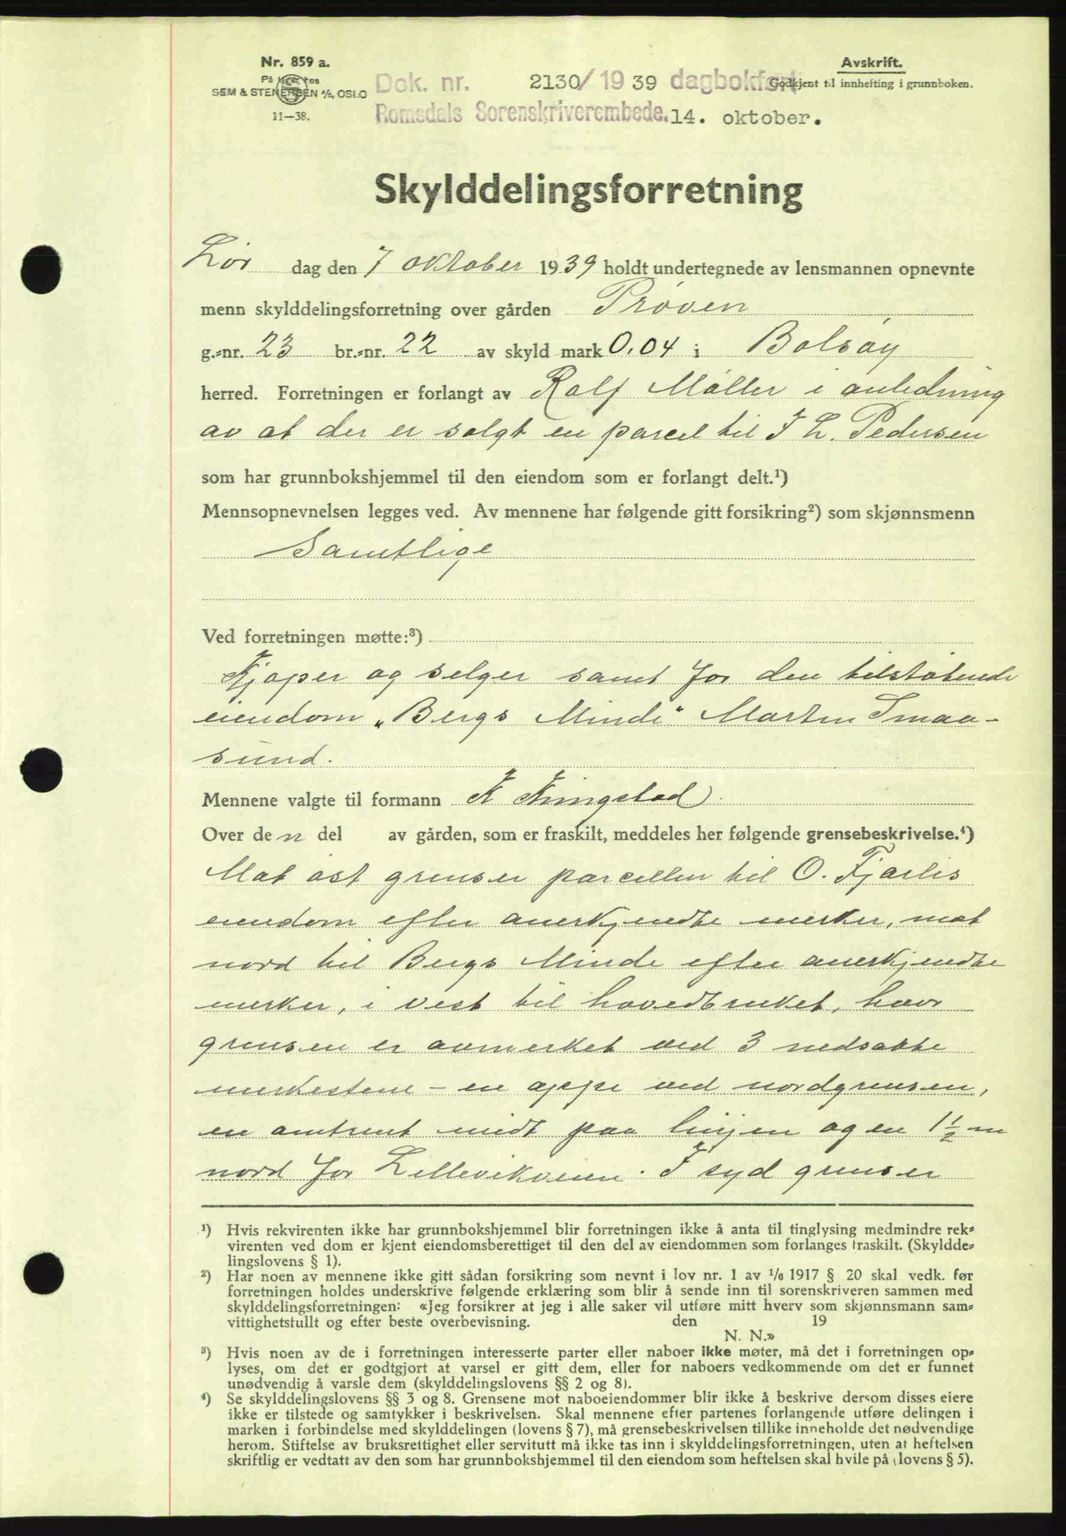 Nr. 859 a.
SEM & STENERSEN A/S, OSLO
11—38.
Avskrift.
Godkjent til innhefting i grunnboken.
Dok. nr. 2130/1939 dagbokført
Romsdals Sorenskriverembede. 14. oktober.
Skylddelingsforretning
Lør dag den 7 oktober 1939 holdt undertegnede av lensmannen opnevnte
menn skylddelingsforretning over gården Prøven
g.-nr. 23 br.-nr. 22 av skyld mark 0.04 i Bolsøy
herred. Forretningen er forlangt av Rolf Møller i anledning
av at der er solgt en parcel til J L. Pedersen
som har grunnbokshjemmel til den eiendom som er forlangt delt.¹)
Mennsopnevnelsen legges ved. Av mennene har følgende gitt forsikring²) som skjønnsmenn
Samtlige
Ved forretningen møtte:³)
Kjøper og selger samt for den tilstøtende
eiendom „Bergs Minde" Marten Smaa-
sund.
Mennene valgte til formann K Kringstad
Over den del av gården, som er fraskilt, meddeles her følgende grensebeskrivelse.⁴)
Mot øst grenser parcellen til O. Fjærlis
eiendom efter anerkjendte merker, mot
nord til Bergs Minde efter anerkjendte
merker, i vest til hovedbruket, hvor
grensen er avmerket ved 3 nedsatte
merkestene – en oppe ved nordgrensen,
en omtrent midt paa linjen og en 1½ m
nord for Lillevikveien. I syd grenser
¹) Hvis rekvirenten ikke har grunnbokshjemmel blir forretningen ikke å anta til tinglysing medmindre rek-
virenten ved dom er kjent eiendomsberettiget til den del av eiendommen som forlanges fraskilt. (Skyldde-
lingslovens § 1).
²) Har noen av mennene ikke gitt sådan forsikring som nevnt i lov nr. 1 av 1/6 1917 § 20 skal vedk. før
forretningen holdes underskrive følgende erklæring som blir å sende inn til sorenskriveren sammen med
skylddelingsforretningen: «Jeg forsikrer at jeg i alle saker vil utføre mitt hverv som skjønnsmann sam-
vittighetsfullt og efter beste overbevisning. den 19
N. N.»
³) Hvis noen av de i forretningen interesserte parter eller naboer ikke møter, må det i forretningen op-
lyses, om det er godtgjort at varsel er gitt dem, eller for naboers vedkommende om det er funnet
unødvendig å varsle dem (skylddelingslovens §§ 2 og 8).
⁴) Se skylddelingslovens §§ 3 og 8. Grensene mot naboeiendommer blir ikke å beskrive dersom disses eiere
ikke er tilstede og samtykker i beskrivelsen. Skal mennene efter partenes forlangende utføre delingen i
marken i forbindelse med skylddelingen (lovens § 7), må grensebeskrivelsen tillike inneholde det nødvendige
herom. Stiftelse av bruksrettighet eller servitutt må ikke tas inn i skylddelingsforretningen, uten at heftelsen
skriftlig er vedtatt av den som har grunnbokshjemmel til den eiendom som heftelsen skal hvile på (lovens § 5).